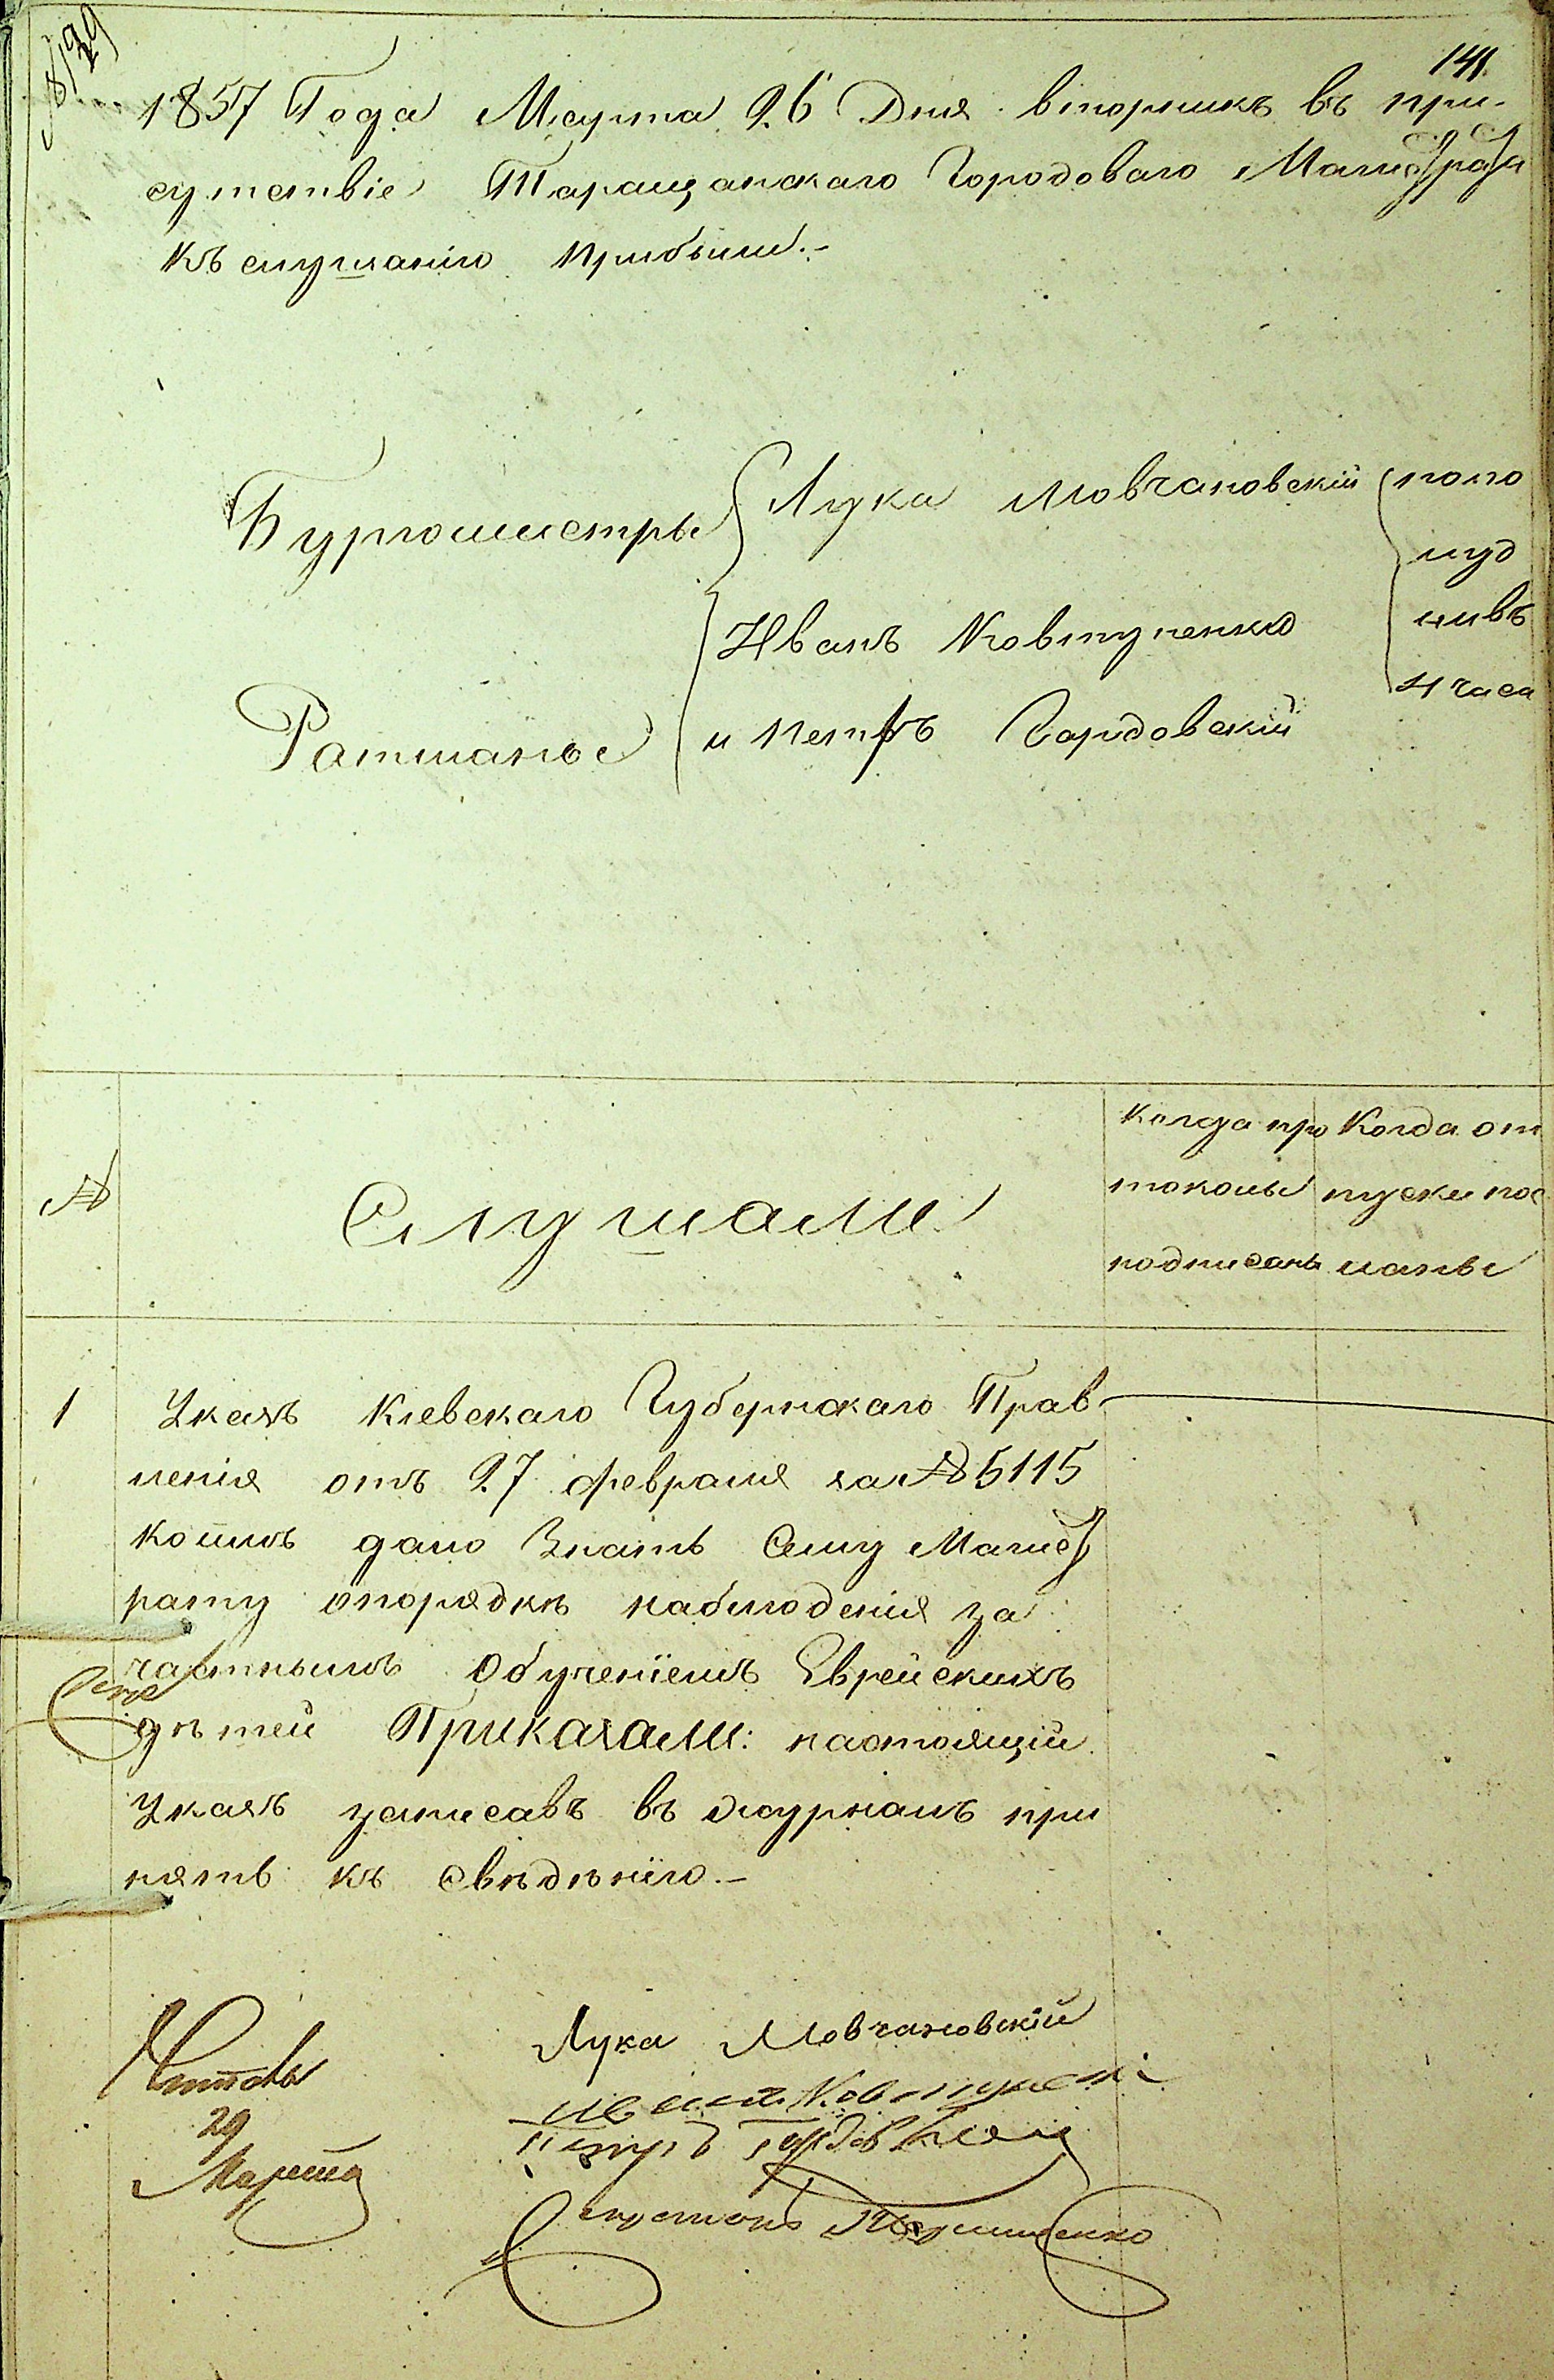 141.
1857 Года Марта 26 Дня вторникъ въ при-
сутствіе Таращанскаго Городоваго Магистрата
къ слушанію прибыли.-
Бургомистры Лука Мовчановскій
пополуд
нивъ
4 часа
Иванъ Ковтуненко
Ратманы и Петръ Гордовскій
№ Слушали
Когда про
токолы
подписаны
Когда от
пуски пос
ланы
1 Указъ Кіевскаго Губернскаго Прав
ленія отъ 27 февраля за № 5115
коимъ дано Знать Сему Магист
рату опорядкѣ наблюденія за
частнымъ Обученіемъ Еврейскихъ
дѣтей Приказали: настоящій
Указъ записавъ въ журналъ при
нять къ свѣдѣнію.-
Лука Мовчановскій
Иванъ Ковтуненко
Петръ Гордовскій
29
Марта
Секретарь